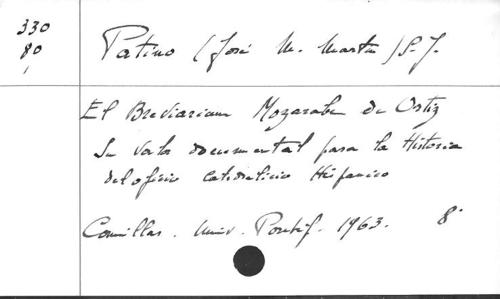 330
80
Patino (José M. Martin) S. J.
El Breviarium Mozarabe de Ortiz
Su valor documental para la Historia
del oficio catedralicio Hispanico
Comillas. Univ. Pontif. 1963. 8º